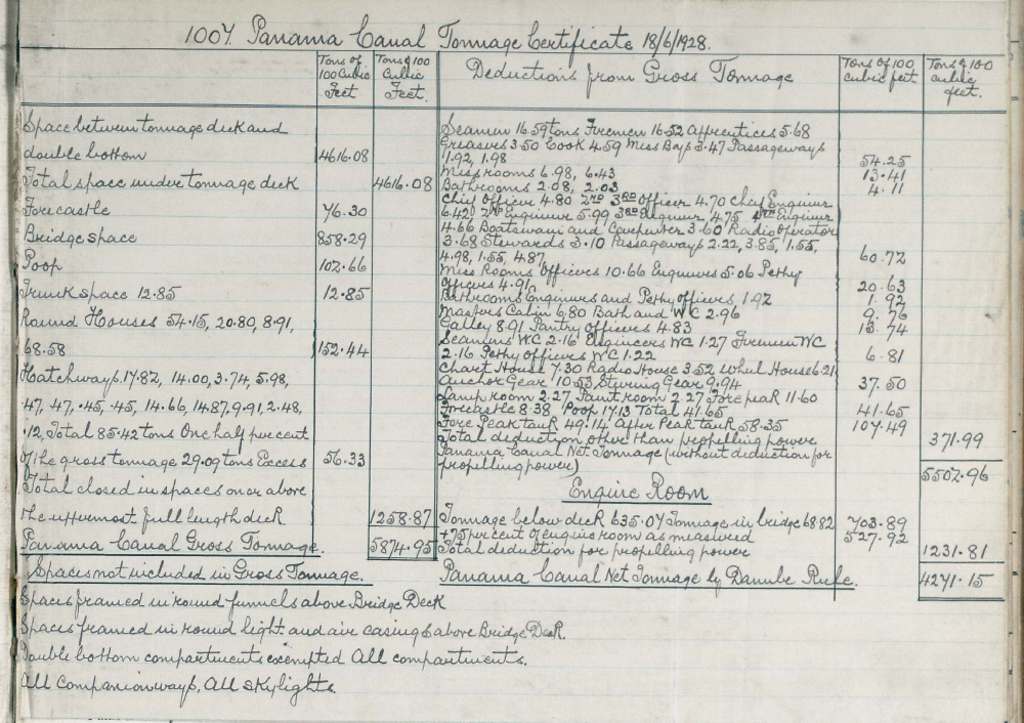 1007. Panama Canal Tonnage Certificate 18/6/1928.
Tons of 100 Cubic Feet
Tons of 100 Cubic Feet.
Space between tonnage deck and
double bottom 4616.08
Total space under tonnage deck 4616.08
Forecastle 76.30
Bridge space 858.29
Poop 102.66
Trunk space 12.85 12.85
Round Houses 54.15, 20.80, 8.91,
68.58 152.44
Hatchways 17.82, 14.00, 3.74, 5.98,
.47, .47, .45, .45, 14.66, 14.87, 9.91, 2.48,
.12, Total 85.42 tons One half per cent
of the gross tonnage 29.09 tons Excess 56.33
Total closed in spaces on or above
the uppermost full length deck 1258.87
Panama Canal Gross Tonnage. 5874.95
Spaces not included in Gross Tonnage.
Spaces framed in round funnels above Bridge Deck
Spaces framed in round light and air casings above Bridge Deck
Double bottom compartments exempted All compartments.
All Companionways, All Skylights.
Deductions from Gross Tonnage
Tons of 100 cubic feet
Tons of 100 cubic feet.
Seamen 16.59 tons Firemen 16.52 Apprentices 5.68
Greasers 3.50 Cook 4.59 Mess Boys 3.47 Passageways
1.92, 1.98 54.25
Messrooms 6.98, 6.43 13.41
Bathrooms 2.08, 2.03 4.11
Chief Officer 4.80 2nd 3rd Officer 4.70 Chief Engineer
6.42 2nd Engineer 5.99 3rd Engineer 4.75 4th Engineer
4.66 Boatswain and Carpenter 3.60 Radio Operator
3.68 Stewards 3.10 Passageways 2.22, 3.85, 1.55,
4.98, 1.55, 4.87 60.72
Mess Rooms Officers 10.66 Engineers 5.06 Petty
officers 4.91 20.63
Bathrooms Engineers and Petty officers, 1.92 1.92
Masters Cabin 6.80 Bath and WC 2.96 9.76
Galley 8.91 Pantry officers 4.83 13.74
Seamens WC 2.16 Engineers WC 1.27 Firemen WC
2.16 Petty officers WC 1.22 6.81
Chart House 7.30 Radio House 3.52 Wheel House 6.21
Anchor Gear 10.53 Steering Gear 9.94 37.50
Lamp room 2.27 Paint room 2.27 Fore peak 11.60
Forecastle 8.38 Poop 17.13 Total 41.65 41.65
Fore Peak tank 49.14 After Peak tank 58.35 107.49
Total deduction other than propelling power 371.99
Panama Canal Net Tonnage (without deduction for
propelling power) 5502.96
Engine Room
Tonnage below deck 635.07 Tonnage in bridge 68.82 703.89
+75 percent of engine room as measured 527.92
Total deduction for propelling power 1231.81
Panama Canal Net Tonnage by Danube Rule. 4271.15